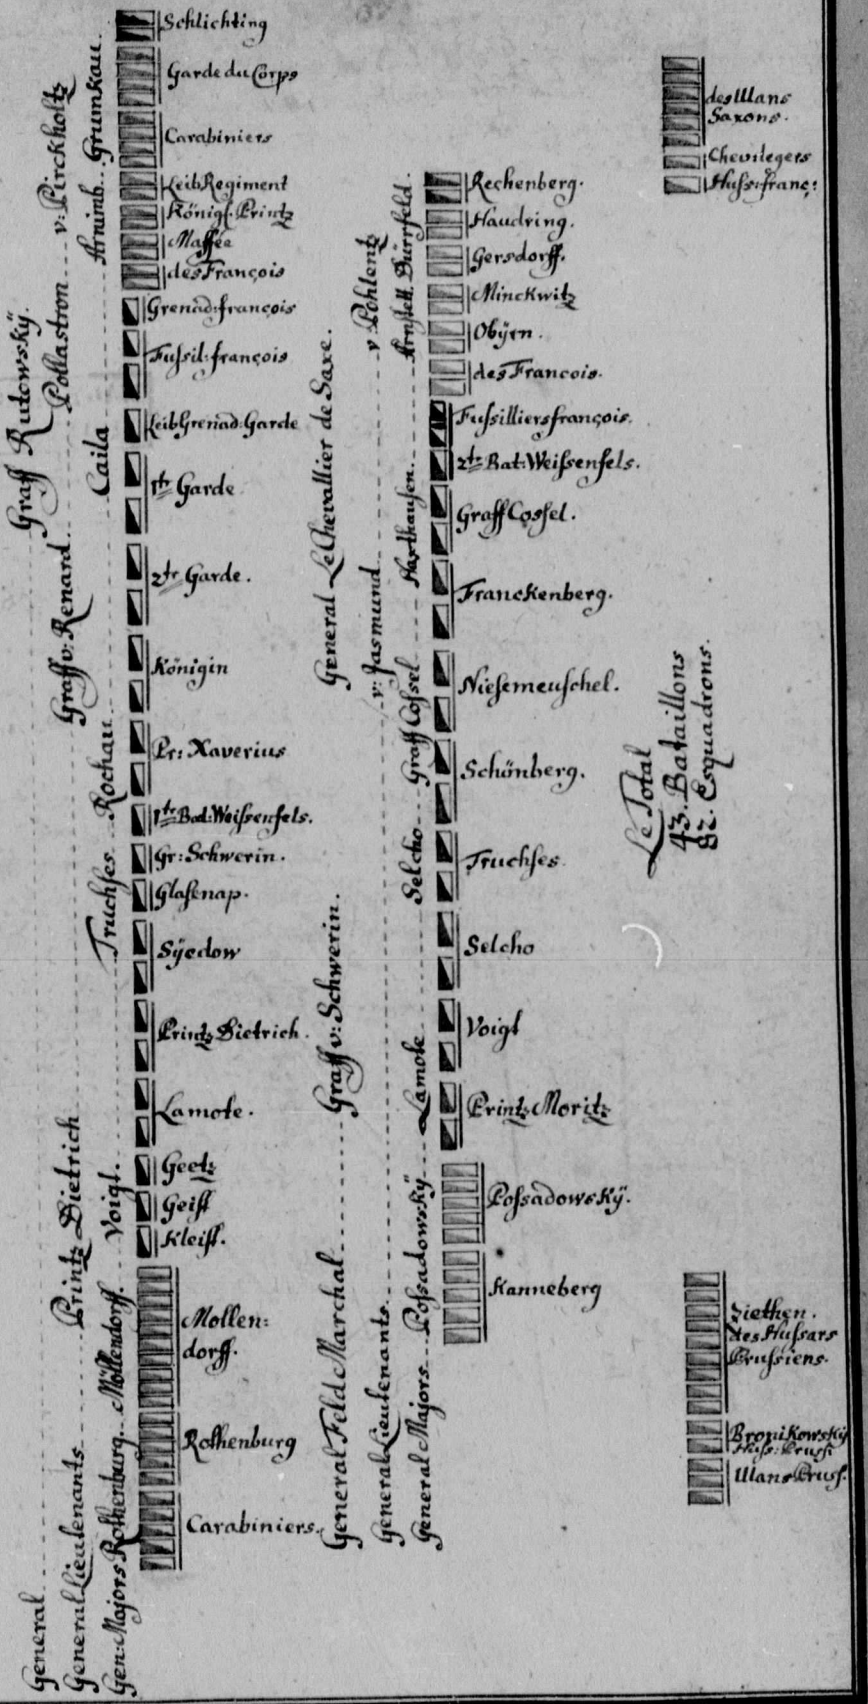 General....Graff Rutowskÿ.
General Lieutenants....Printz Dietrich....Graff v: Renard....Pollastron....v: Pirckholtz
Gen: Majors Rothenburg...Möllendorff....Voigt....Truchses...Rochau....Caila....Arnimb...Grumkau.
Schlichting
Garde du Corps
Carabiniers
Leib Regiment
Königl. Printz
Maffée
des François
Grenad: françois
Fussil: françois
Leib Grenad: Garde
1te Garde
2te Garde.
Königin
Pr: Xaverius
1te Bat: Weissenfels.
Gr: Schwerin.
Glasenap.
Sÿedow
Printz Dietrich.
Lamote.
Geetz
Geist
Kleist.
Mollen:
dorff.
Rothenburg
Carabiniers.
General Feld Marchal....Graff v: Schwerin. General Le Chevallier de Saxe.
General Lieutenants....v: Jasmund....v: Pohlentz
General Majors...Possadowskÿ...Lamote....Selcho...Graff Cossel....Haxthausen....Arnstett. Dürrfeld.
Rechenberg.
Haudring.
Gersdorff.
Minckwitz
Obÿrn.
des Francois.
Fussilliers françois.
2te Bat: Weissenfels.
Graff Cossel.
Franckenberg.
Niesemeuschel.
Schönberg.
Truchses
Selcho
Voigt
Printz Moritz
Possadowskÿ.
Kanneberg
des Ulans
Saxons.
Chevilegers
Huss: franç:
Le Total
43. Bataillons
82. Esquadrons.
Ziethen.
des Hussars
Prussiens.
Bronikowskÿ
Huss: Pruss:
Ulans Pruss.